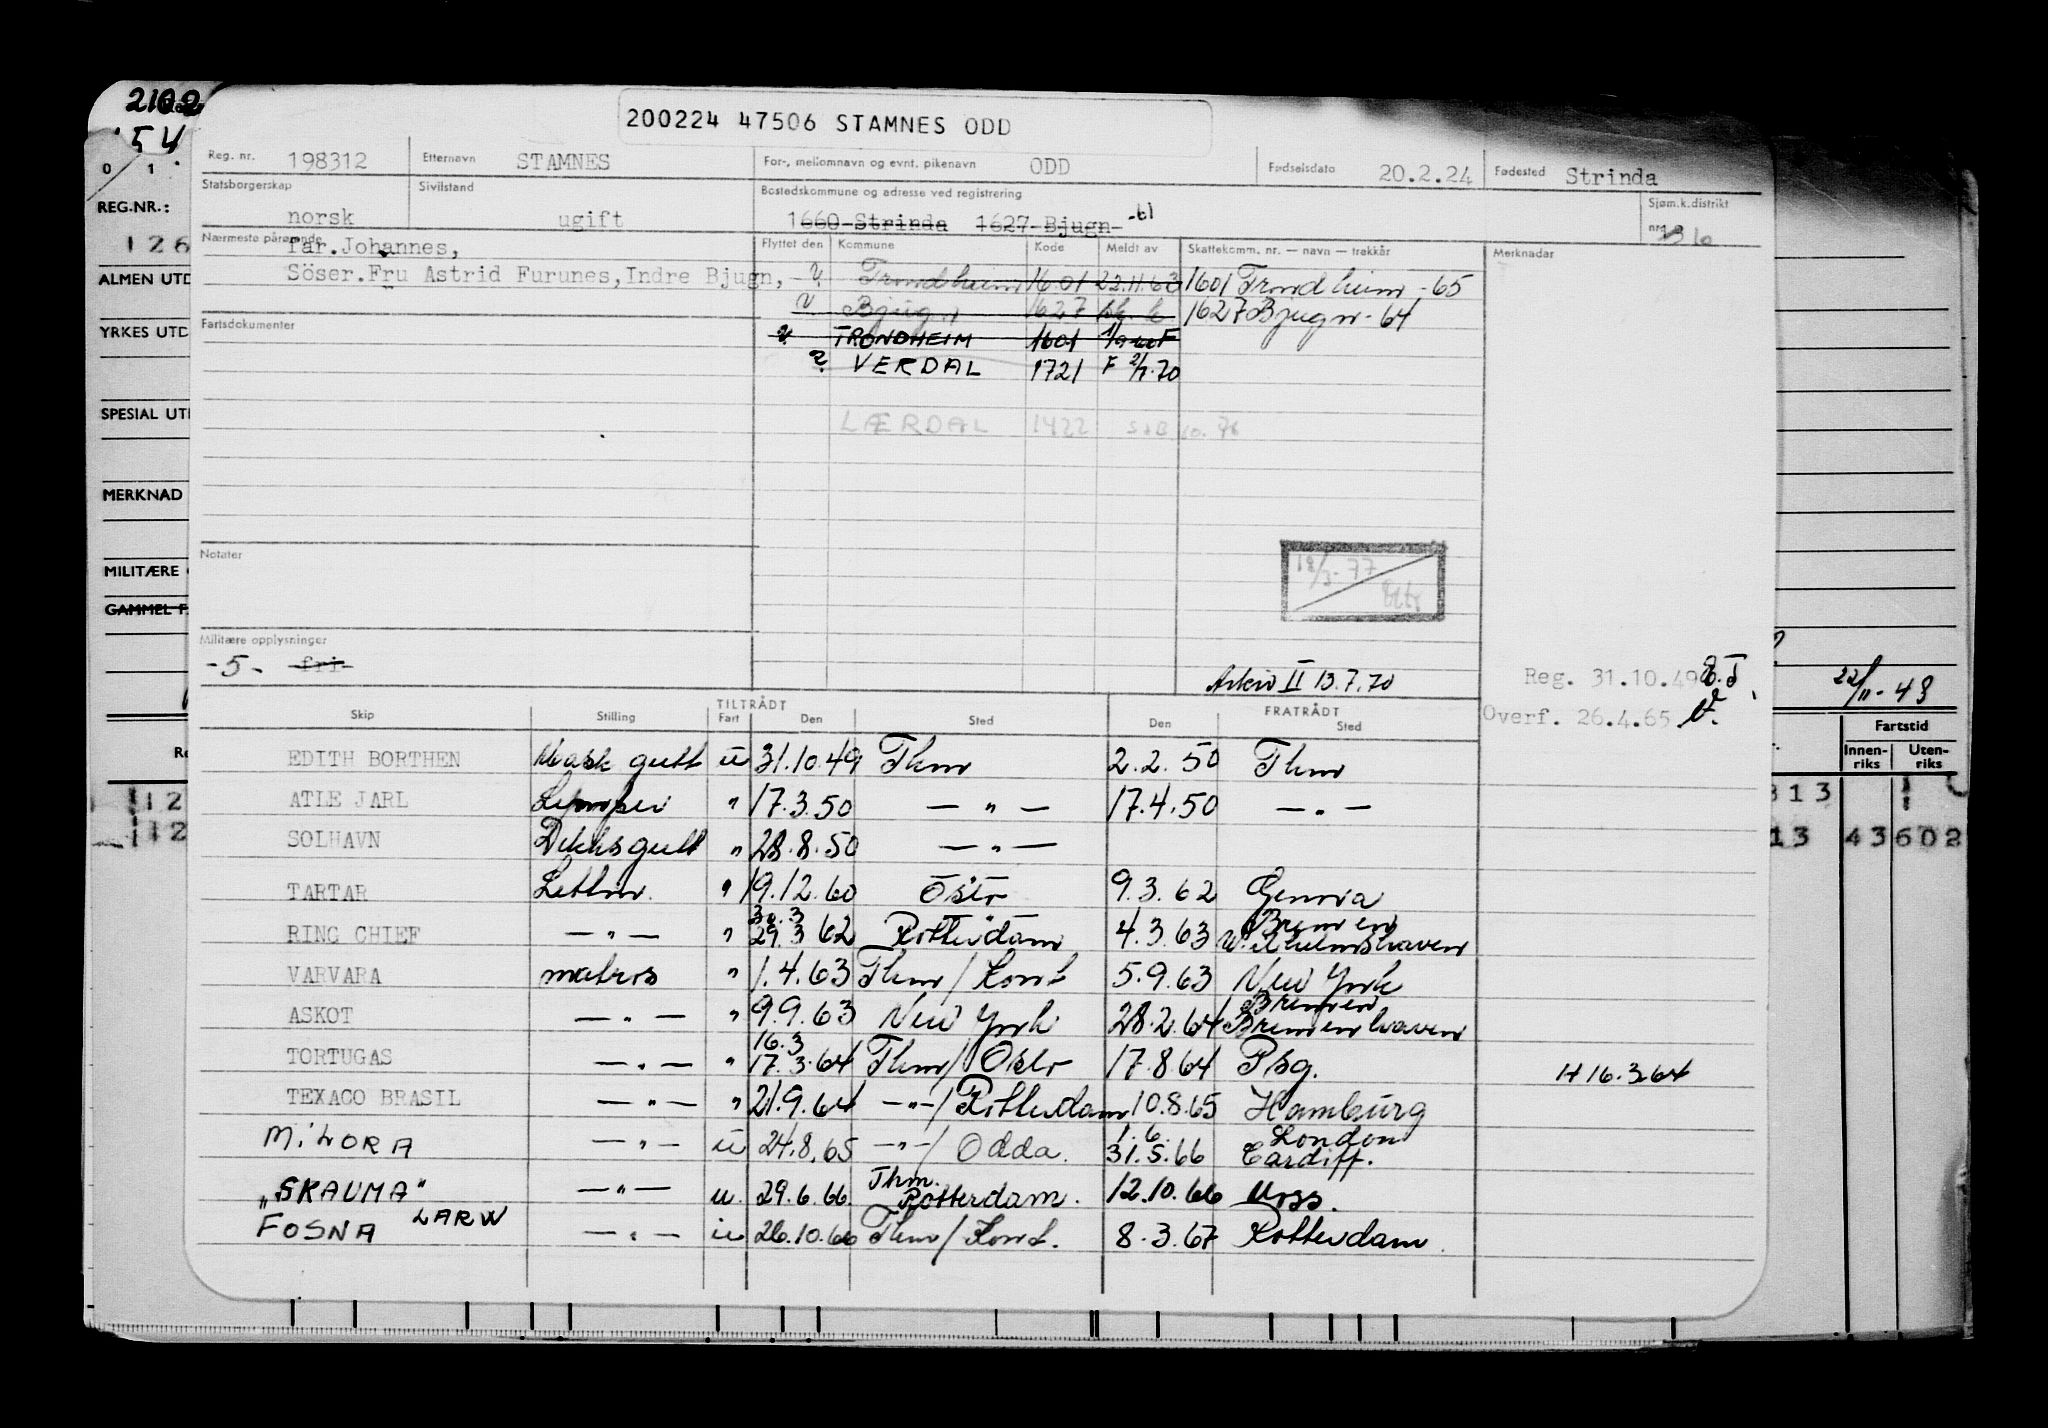 2102
54
200224 47506 STAMNES ODD
0 1
Reg. nr. 198312 Etternavn STAMNES For-, mellomnavn og evnt. pikenavn ODD Fødselsdato 20.2.24 Fødested Strinda
Statsborgerskap norsk Sivilstand ugift Bostedskommune og adresse ved registrering 1660-Strinda 1627-Bjugn- -61 Sjøm.k.distrikt nr.
REG.NR.:
126
Nærmeste pårørende Far.Johannes,
Söser.Fru Astrid Furunes,Indre Bjugn,
Flyttet den Kommune Kode Meldt av Skattekomm. nr. — navn — trekkår Merknader
Trondheim 1601 22.11.63 1601 Trondheim -65
Bjugn 1627 1627 Bjugn - 64
TRONDHEIM 1601
? VERDAL 1721 F 2/7.70
LÆRDAL 1422 10. 76
ALMEN UTD
YRKES UTD
SPESIAL UTD
MERKNAD
MILITÆRE
GAMMEL F.
Fartsdokumenter
Notater
18/3-77
Militære opplysninger
-5- fri-
Arkiv II 13.7.70
Reg. 31.10.49
Overf. 26.4.65
22/11-48
Skip Stilling TILTRÅDT Fart Den Sted FRATRÅDT Den Sted
Fartstid
Innen-riks Uten-riks
EDITH BORTHEN Mask gutt u 31.10.49 Thm 2.2.50 Thm
ATLE JARL Lemper " 17.3.50 — " — 17.4.50 — " —
SOLHAVN Dekksgutt " 28.8.50 — " —
TARTAR Lettm. " 19.12.60 Oslo 9.3.62 Genova
RING CHIEF — " — " 30.3 29.3 62 Rotterdam 4.3.63 Bremen Wilhelmshaven
VARVARA matros " 1.4.63 Thm / Kont 5.9.63 New York
ASKOT — " — " 9.9.63 New York 28.2.64 Bremen Bremenhaven
TORTUGAS — " — " 16.3 17.3.64 Thm / Oslo 17.8.64 Psg. H 16.3.64
TEXACO BRASIL — " — " 21.9.64 — " — / Rotterdam 10.8.65 Hamburg
MiLORA — " — u 24.8.65 — " — / Odda. 1.6. 31.5.66 London Cardiff.
"SKAUMA" — " — u. 29.6.66 Thm. Rotterdam. 12.10.66 Moss.
FOSNA LARW — " — u 26.10.66 Thm / Kont. 8.3.67 Rotterdam.
12 313
12 13 43602